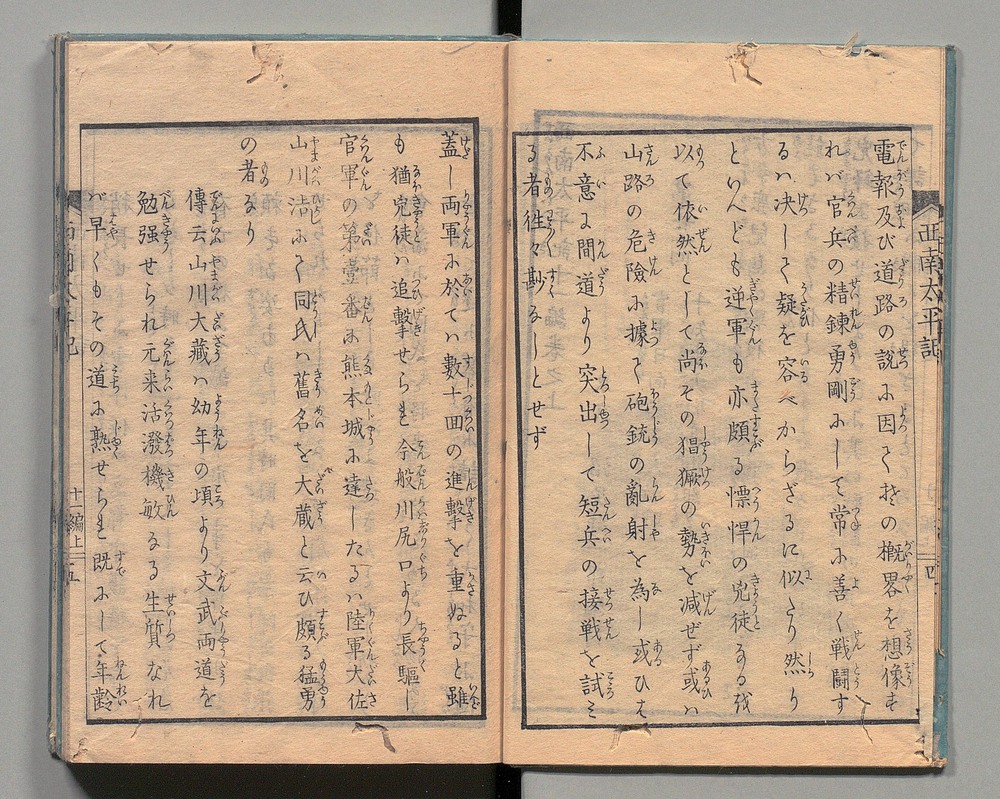 電報及び道路の説に因てその概畧を想像す
れバ官兵の精錬勇剛にして常に善く戦闘す
るハ决して疑を容べからざるに似たり然り
といへども逆軍も亦頗る慓悍の兇徒なる我
以て依然として尚その猖獗の勢を减ぜず或ハ
山路の危險に據て砲銃の亂射を為し或ひは
不意に間道より突出して短兵の接戦を試ミ
る者徃々尠なしとせず
西南太平記
四
蓋し両軍に於てハ數十囬の進擊を重ぬると雖
も猶兇徒ハ追擊せられ今般川尻口より長驅し
官軍の第壹番に熊本城に達したるハ陸軍大佐
山川浩にて同氏ハ舊名を大蔵と云ひ頗る猛勇
の者なり
傳云山川大藏ハ幼年の頃より文武両道を
勉强せられ元来活潑機敏なる生質なれ
バ早くもその道に熟せられ既にして年齡
西南太平記
十一編上
五